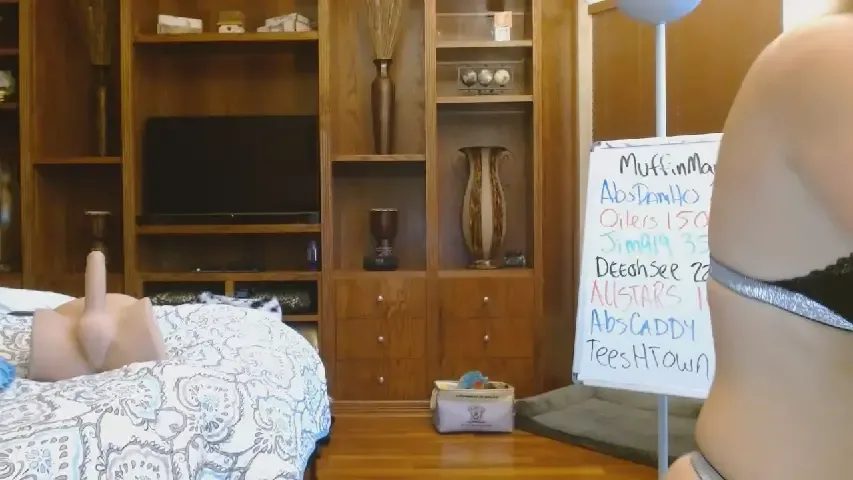 MuffinMa
AbsDamHo
Oilers 150
Jim919 35
DEEohSEE 22
AllSTARS 1
AbsCADDY
TeesHTown